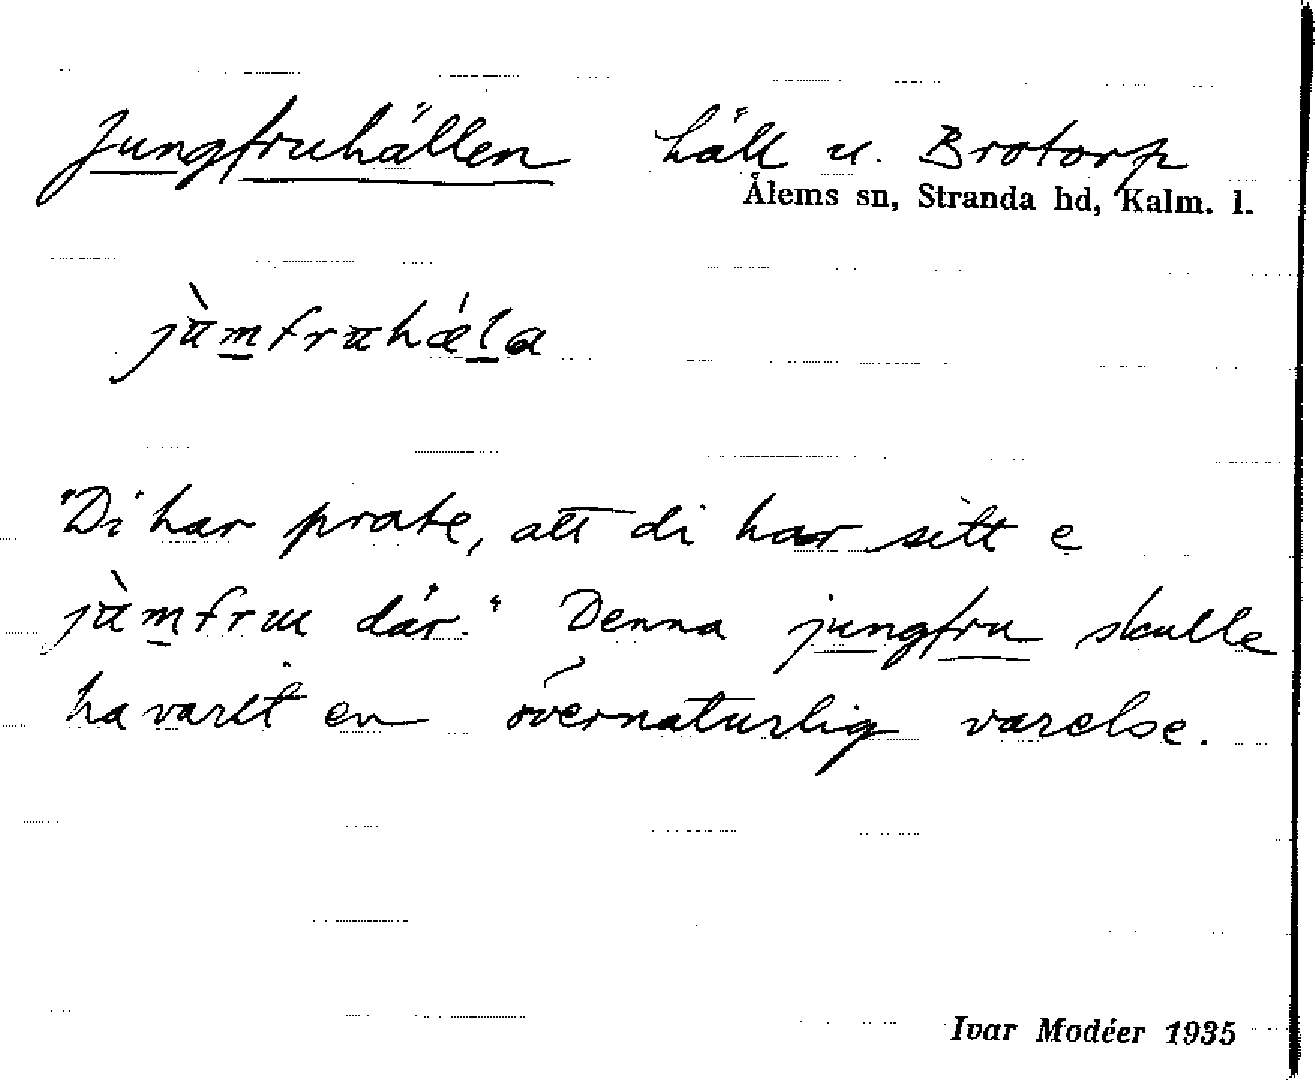 Jungfruhällen häll u. Brotorp
Ålems sn, Stranda hd, Kalm. l.
jùmfruhǽla
"Di har prate, att di har sitt e
jùmfru där." Denna jungfru skulle
ha varit en övernaturlig varelse.
Ivar Modéer 1935